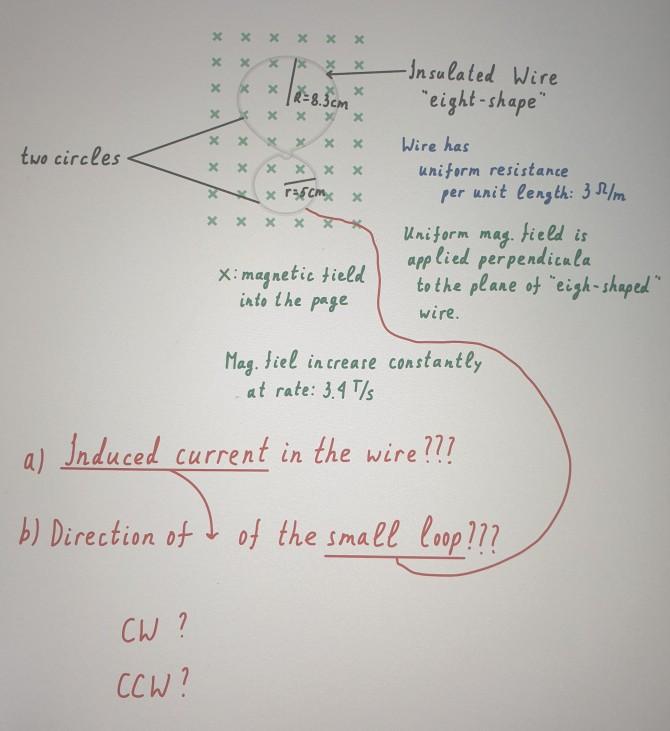 Insulated Wire
"eight-shape"
R=8.3cm
two circles
r=5cm
Wire has
uniform resistance
per unit length: 3 Ω/m
Uniform mag. field is
applied perpendicula
to the plane of "eigh-shaped"
wire.
x: magnetic field
into the page
Mag. fiel increase constantly
at rate: 3.4 T/s
a) Induced current in the wire???
b) Direction of of the small loop???
CW ?
CCW ?